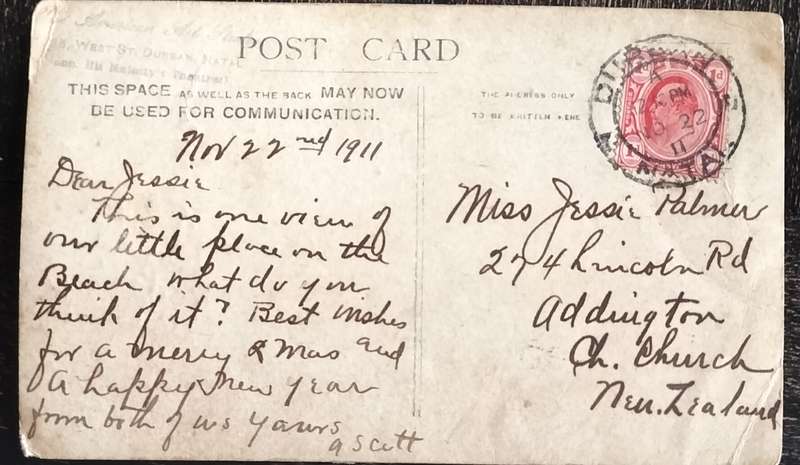 American Art
West St. Durban, Natal
His Majesty's Theatre
POST CARD
THIS SPACE AS WELL AS THE BACK MAY NOW
BE USED FOR COMMUNICATION.
THE ADDRESS ONLY
TO BE WRITTEN HERE
Nov 22nd 1911
Dear Jessie
This is one view of
our little place on the
Beach what do you
think of it? Best wishes
for a merry Xmas and
A happy New Year
from both of us Yours
a Scott
DURBAN
PM
NO 22
11
NATAL
Miss Jessie Palmer
274 Lincoln Rd
Addington
Ch. Church
New. Zealand